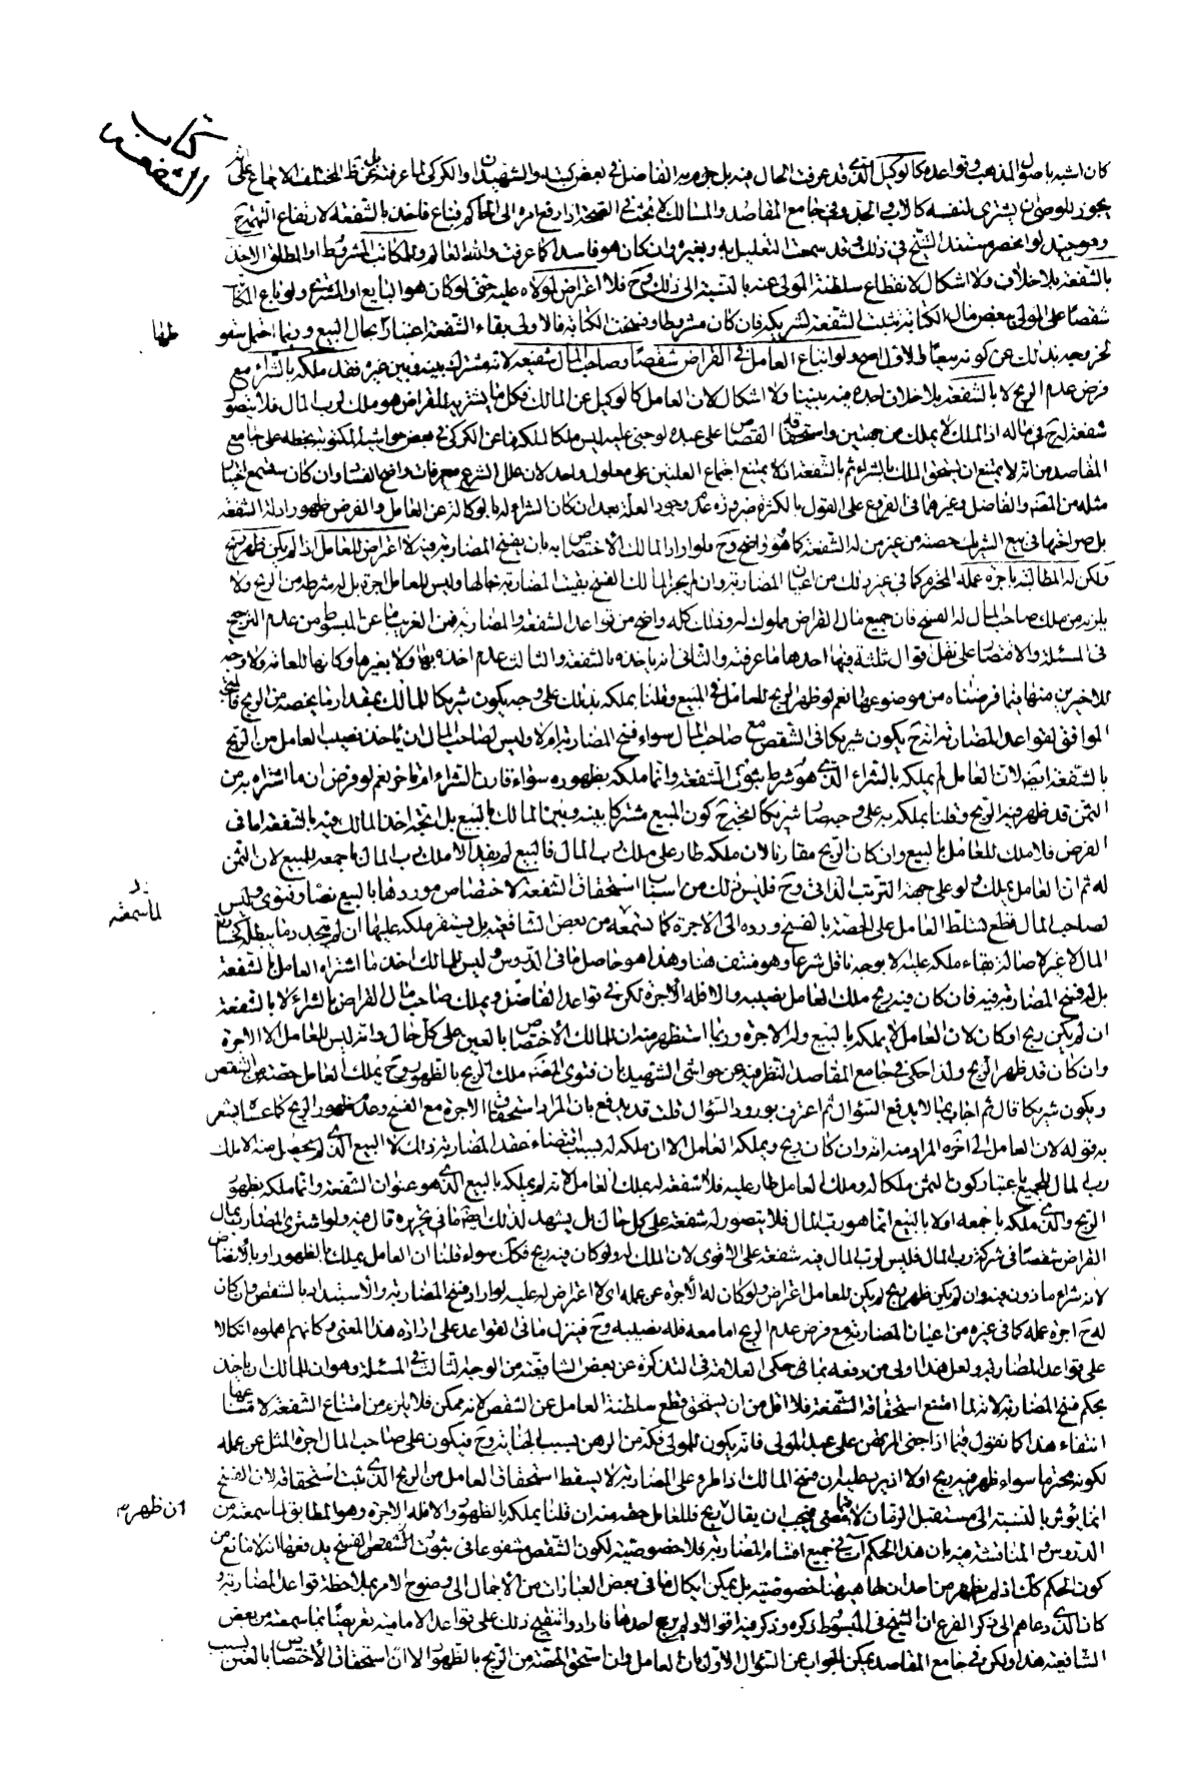 كتاب
الشفعة
كان اشبه باصول المذهب وقواعده كالوكيل الذي قد عرفت الحال فيه بل جزم به الفاضل في بعض كتبه والشهيدان والكركي لما عرفته بل عن ظ المختلف الاجماع على انه
يجوز للوصي ان يشتري لنفسه كالاب والجد وفي جامع المقاصد والمسالك لا بحث في الصحة اذا رفع امره الى الحاكم فباع فاخذ بالشفعة لارتفاع التهمة ح
وهو جيد لو انحصر مستند الشيخ في ذلك وقد سمعت التعليل به وبغيره وان كان هو فاسدا كما عرفت والله العالم وللمكاتب المشروط او المطلق الاخذ
بالشفعة بلا خلاف ولا اشكال لانقطاع سلطنة المولى عنه بالنسبة الى ذلك وح فلا اعتراض لمولاه عليه حتى لو كان هو البايع او المشتري ولو باع المكاتب
شقصا على المولى ببعض مال الكتابة ثبتت الشفعة لشريكه فان كان مشروطا وفسخت الكتابة فالاولى بقاء الشفعة اعتبارا بحال البيع وربما احتمل سقو
طها
لخروجه بذلك عن كونه مبيعا والاول اصح ولو ابتاع العامل في القراض شقصا وصاحب المال شفيعه لانه مشترك بينه وبين غيره فقد ملكه بالشراء مع
فرض عدم الربح لا بالشفعة بلا خلاف اجده فيه بيننا ولا اشكال لان العامل كالوكيل عن المالك فكل ما يشتريه للقراض هو ملك لرب المال فلا يتصور
شفعة له ح في ماله اذ الملك لا يملك من جهتين واستحقاقه القصاص على عبده لو جنى عليه ليس ملكا لملكه فما عن الكركي في بعض حواشيه المكتوبة بخطه على جامع
المقاصد من انه لا يمتنع ان يستحق الملك بالشراء ثم بالشفعة اذ لا يمتنع اجتماع العلتين على معلول واحد لان علل الشرع معرفات واضح الفساد وان كان ستسمع احتمال
مثله من المصنف والفاضل وغيرهما في الفروع على القول بالكثرة ضرورة عدم وجود العلة بعد ان كان الشراء له بالوكالة عن العامل والفرض ظهور ادلة الشفعة
بل صراحتها في بيع الشريك حصته من غير من له الشفعة كما هو واضح وح فلو اراد المالك الاختصاص به بان يفسخ المضاربة فيه لا اعتراض للعامل اذا لم يكن ظهر ربح
ولكن له المطالبة باجرة عمله المحترم كما في غير ذلك من اعيان المضاربة وان لم يجز المالك الفسخ بقيت المضاربة بحالها وليس للعامل اجرة بل له شرطه من الربح ولا
يلزم من ملك صاحب المال له الفسخ فان جميع مال القراض مملوك له وذلك كله واضح من قواعد الشفعة والمضاربة فمن الغريب ما عن المبسوط من عدم الترجيح
في المسئلة والاقتصار على نقل اقوال ثلثة فيها احدها ما عرفته والثاني انه ياخذه بالشفعة والثالث عدم اخذه بها ولا بغيرها وكانها للعامة ولا وجه
للاخيرين منها فيما فرضناه من موضوعها نعم لو ظهر الربح للعامل في المبيع وقلنا بملكه بذلك على وجه يكون شريكا للمالك بمقدار ما يخصه من الربح فالمتجه
الموافق لقواعد المضاربة انه ح يكون شريكا في الشقص مع صاحب المال سواء فسخ المضاربة ام لا وليس لصاحب المال ان ياخذ نصيب العامل من الربح
بالشفعة ايضا لان العامل لم يملكه بالشراء الذي هو شرط ثبوت الشفعة وانما ملكه بظهوره سواء قارن الشراء ام تاخر نعم لو فرض ان ما اشتراه به من
الثمن قد ظهر فيه الربح وقلنا بملكه به على وجه صار شريكا فيتجه ح كون المبيع مشتركا بينه وبين المالك بالبيع بل يتجه اخذ المالك فيه بالشفعة اما في
الفرض فلا ملك للعامل بالبيع وان كان الربح مقارنا لان ملكه طار على ملك رب المال فالبيع لم يفد الا ملك رب المال باجمعه للمبيع لان الثمن
له ثم ان العامل يملك ولو على جهة الترتب الذاتي وح فليس ذلك من اسباب استحقاق الشفعة لاختصاص موردها بالبيع نصا وفتوى وليس
لصاحب المال قطع تسلط العامل على الحصة بالفسخ ورده الى الاجرة كما ستسمعه من بعض الشافعية بل يستقر ملكه عليها ان لم يتجدد ما يبطله كخسارة
لما سمعته
المال لا غير لاصالة بقاء ملكه عليه الا بوجه ناقل شرعا وهو منتف هنا وهذا هو حاصل ما في الدروس وليس للمالك اخذ ما اشتراه العامل بالشفعة
بل له فسخ المضاربة فيه فان كان فيه ربح ملك العامل نصيبه والا فله الاجرة لكن في قواعد الفاضل ويملك صاحب مال القراض بالشراء لا بالشفعة
ان لم يكن ربح او كان لان العامل لا يملكه بالبيع وله الاجرة وربما استظهر منه ان للمالك الاختصاص بالعين على كل حال وانه ليس للعامل الا الاجرة
وان كان قد ظهر الربح ولذا حكى في جامع المقاصد النظر فيه عن حواشي الشهيد بان فتوى المصنف ملك الربح بالظهور وح يملك العامل حصته من الشقص
ويكون شريكا قال ثم اجاب بما لا يدفع السؤال ثم اعترف بورود السؤال قلت قد يدفع بان المراد استحقاق الاجرة مع الفسخ وعدم ظهور الربح كما عساه يشعر
به قوله لان العامل الى اخره المراد منه انه وان كان ربح ويملكه العامل الا ان ملكه له بسبب اقتضاء عقد المضاربة ذلك لا البيع الذي لم يحصل منه الا ملك
رب المال للجميع باعتبار كون الثمن ملكا له وملك العامل طار عليه فلا شفعة له بملك العامل لانه لم يملكه بالبيع الذي هو عنوان الشفعة وانما ملكه بظهور
الربح والذي ملكه باجمعه اولا بالبيع انما هو رب المال فلا يتصور له شفعة على كل حال بل يشهد لذلك ايضا ما في تحريره قال فيه ولو اشترى المضارب بمال
القراض شقصا في شركة رب المال فليس لرب المال فيه شفعة على الاقوى لان الملك له ولو كان فيه ربح فكك سواء قلنا ان العامل يملك بالظهور او بالانضاض
لانه شراء ماذون فيه وان لم يكن ظهر ربح لم يكن للعامل اعتراض ولو كان له الاجرة عن عمله اي لا اعتراض له عليه لو اراد فسخ المضاربة والاستبداد بالشقص وان كان
له ح اجرة عمله كما في غيره من اعيان المضاربة مع فرض عدم الربح اما معه فله نصيبه وح فينزل ما في القواعد على ارادة هذا المعنى وكانهم هملوه اتكالا
على قواعد المضاربة ولعل هذا اولى من دفعه بما في حكى العلامة في التذكرة عن بعض الشافعية من الوجه الثالث في المسئلة وهو ان للمالك ان ياخذ
بحكم فسخ المضاربة لانه لما امتنع استحقاقه الشفعة فلا اقل من ان يستحق قطع سلطنة العامل عن الشقص لانه ممكن فلا يلزم من امتناع الشفعة لامتناعها
انتفاء هذا كما نقول فيما اذا جنى المرتهن على عبد المولى فانه يكون للمولى فكه من الرهن بسبب الجناية وح فيكون على صاحب المال اجرة المثل عن عمله
لكونه محترما سواء ظهر فيه ربح او لا اذ يرد عليه ان فسخ المالك اذا طرء على المضاربة لا يسقط استحقاق العامل من الربح الذي ثبت استحقاقه لان الفسخ
انما يؤثر بالنسبة الى مستقبل الزمان لا ما مضى فيجب ان يقال ربح فللعامل حصته منه ان قلنا بملكه بالظهور والا فله الاجرة وهو المطابق لما سمعته من
ان ظهر م
الدروس والمناقشة فيه بان هذا الحكم ات في جميع اقسام المضاربة فلا خصوصية لكون الشقص مشفوعا في ثبوت الشقص الفسخ يدفعها انه لا مانع من
كون الحكم كك اذ لم يظهر من احد ان لها هيهنا خصوصية بل يمكن ايكال ما في بعض العبارات من الاجمال الى وضوح الامر بملاحظة قواعد المضاربة و
كان الذي دعاهم الى ذكر الفرع ان الشيخ في المبسوط ذكره وذكر فيه اقوالا ولم يرجح احدها فارادوا تنقيح ذلك على قواعد الامامية تعريضا بما سمعته من بعض
الشافعية هذا ولكن في جامع المقاصد يمكن الجواب عن السؤال الاول بان العامل وان استحق الحصة من الربح بالظهور الا ان استحقاق الاختصاص بالعين بسبب